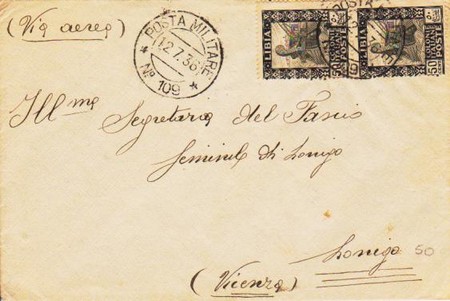 (Via aerea)
POSTA MILITARE
12.7.36
No 109
LIBIA
POSTE ITALIANE
50
LIBIA
POSTE ITALIANE
50
Ill mo Segretaria del Fascio
Feminile di Lonigo
Lonigo 50
(Vicenza)